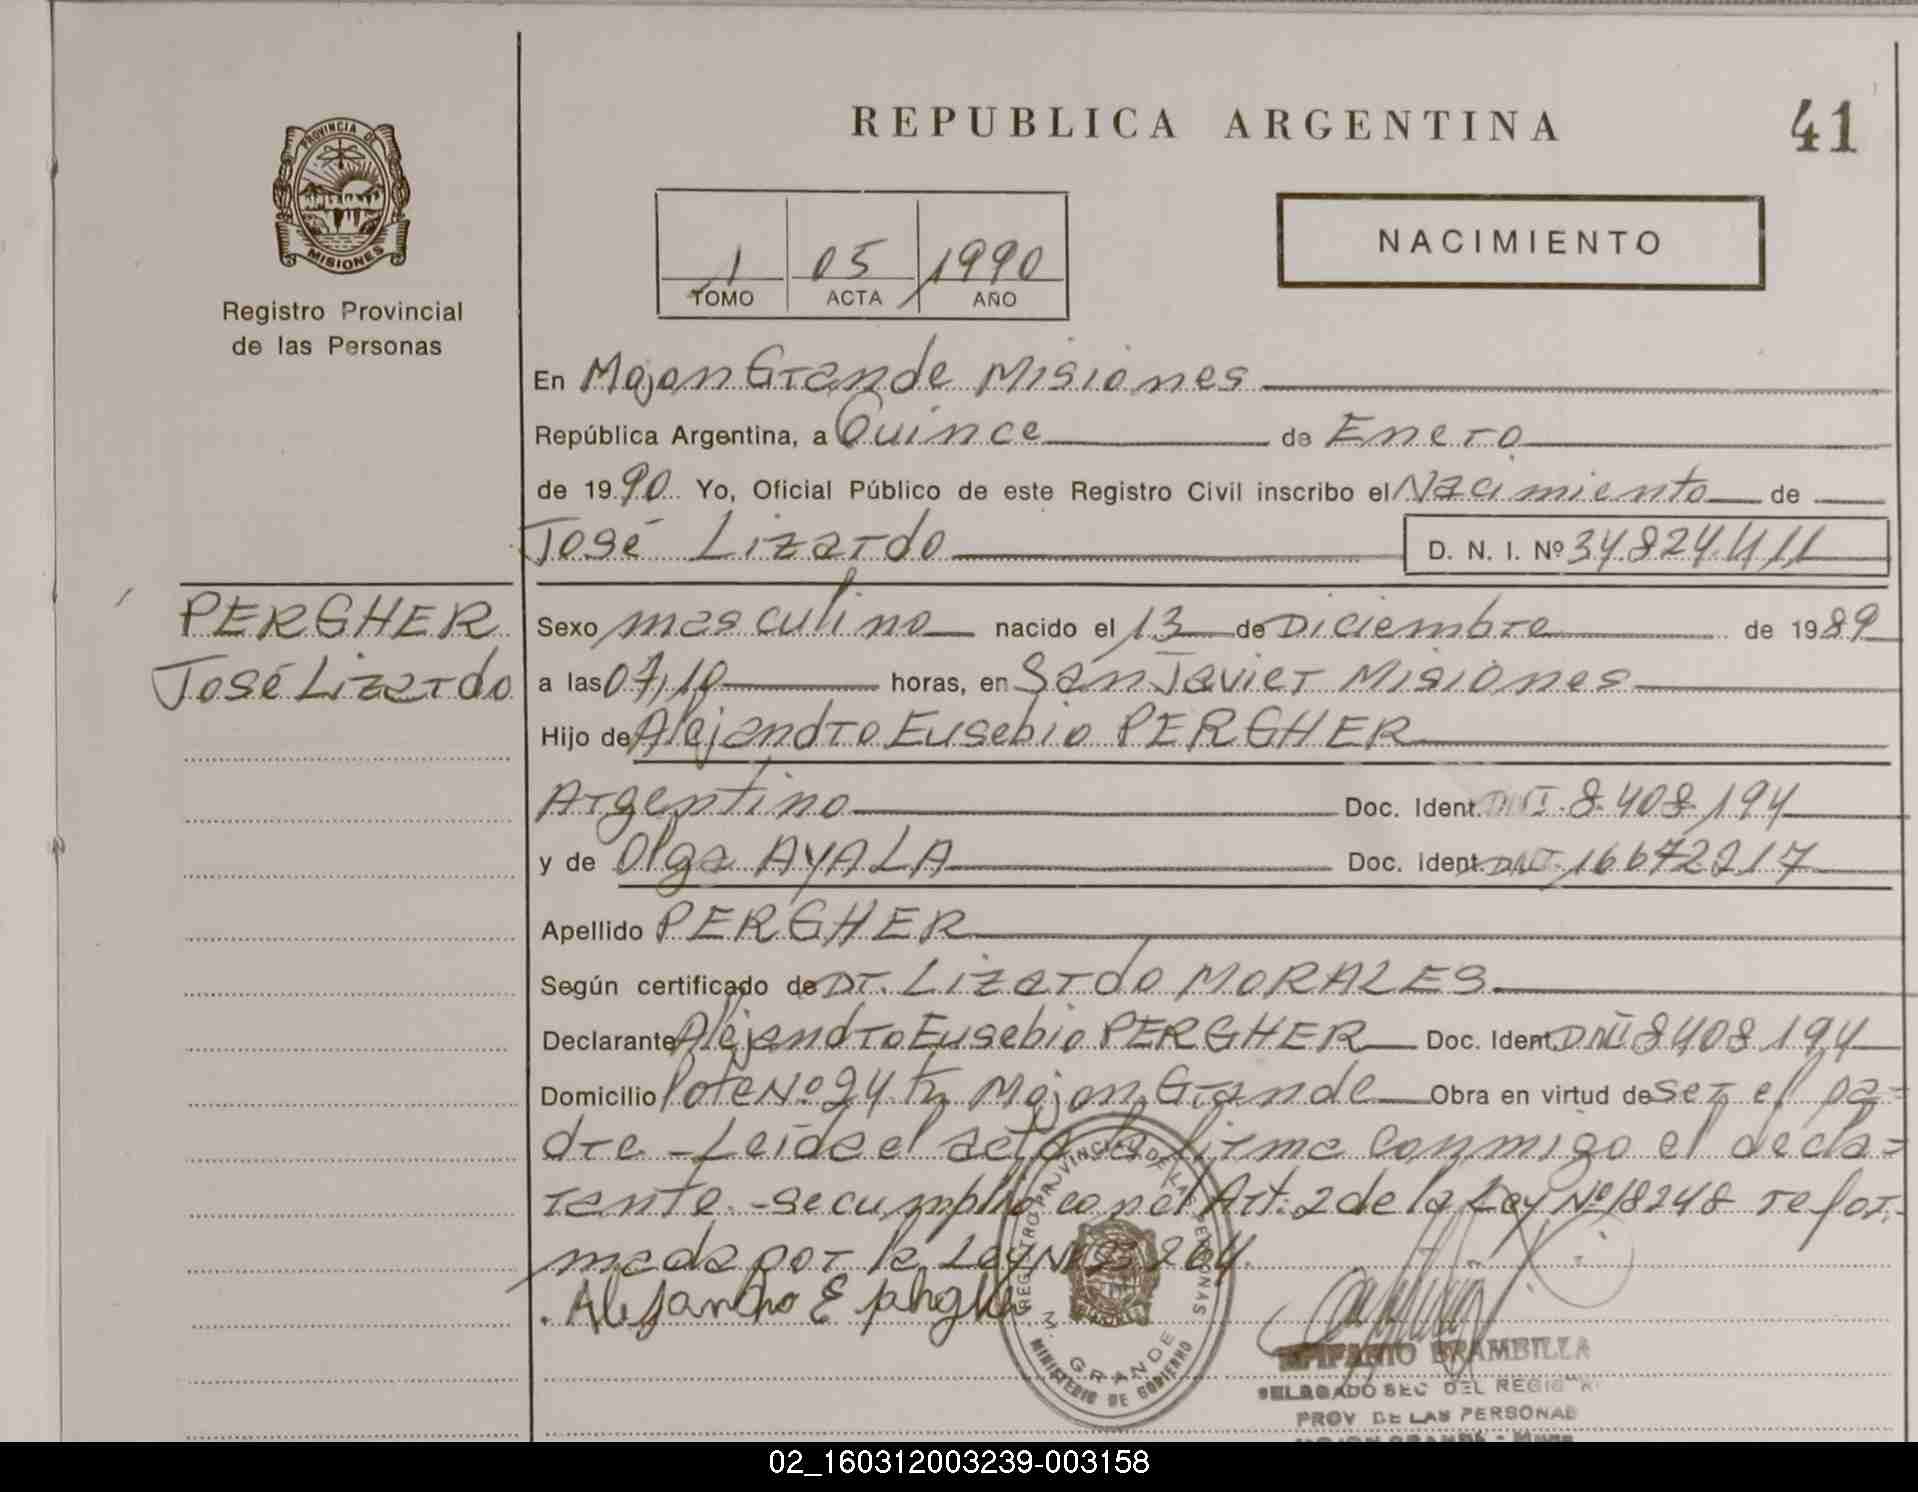 REPUBLICA ARGENTINA
41
PROVINCIA DE
MISIONES
Registro Provincial
de las Personas
1 05 1990
TOMO ACTA AÑO
NACIMIENTO
En Mojon Grande Misiones
República Argentina, a Quince de Enero
de 1990 Yo, Oficial Público de este Registro Civil inscribo el Nacimiento de
José Lizardo D. N. I. Nº 34824411
PERGHER
José Lizardo
Sexo masculino nacido el 13 de Diciembre de 1989
a las 07,10 horas, en San Javier Misiones
Hijo de Alejandro Eusebio PERGHER
Argentino Doc. Ident. DNI. 8.408.194
y de Olga AYALA Doc. Ident. DNI. 16672217
Apellido PERGHER
Según certificado de Dr. Lizardo MORALES
Declarante Alejandro Eusebio PERGHER Doc. Ident. DNI 8408194
Domicilio lote Nº 24 Mojon Grande Obra en virtud de ser el pa=
dre - Leída el acta la firma conmigo el decla=
rante - se cumplio con el Art: 2 de la Ley Nº 18248 refor-
mada por la Ley Nº 23264.
Alejandro E
REGISTRO PROVINCIAL DE LAS PERSONAS
M. GRANDE
MINISTERIO DE GOBIERNO
EPIFANIO BRAMBILLA
DELEGADO SEC DEL REGIS
PROV DE LAS PERSONAS
MOJON GRANDE - Mnes
02_160312003239-003158